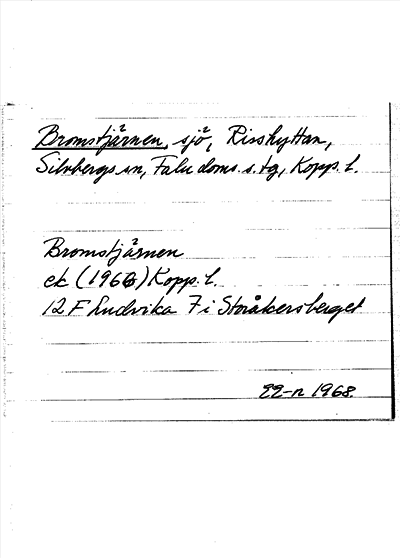 Bromstjärnen, sjö, Risshyttan,
Silvbergs sn, Falu doms. s. tg, Kopp. l.
Bromstjärnen
ek (1966) Kopp. l.
12 F Ludvika 7 i Storåkersberget
1968.